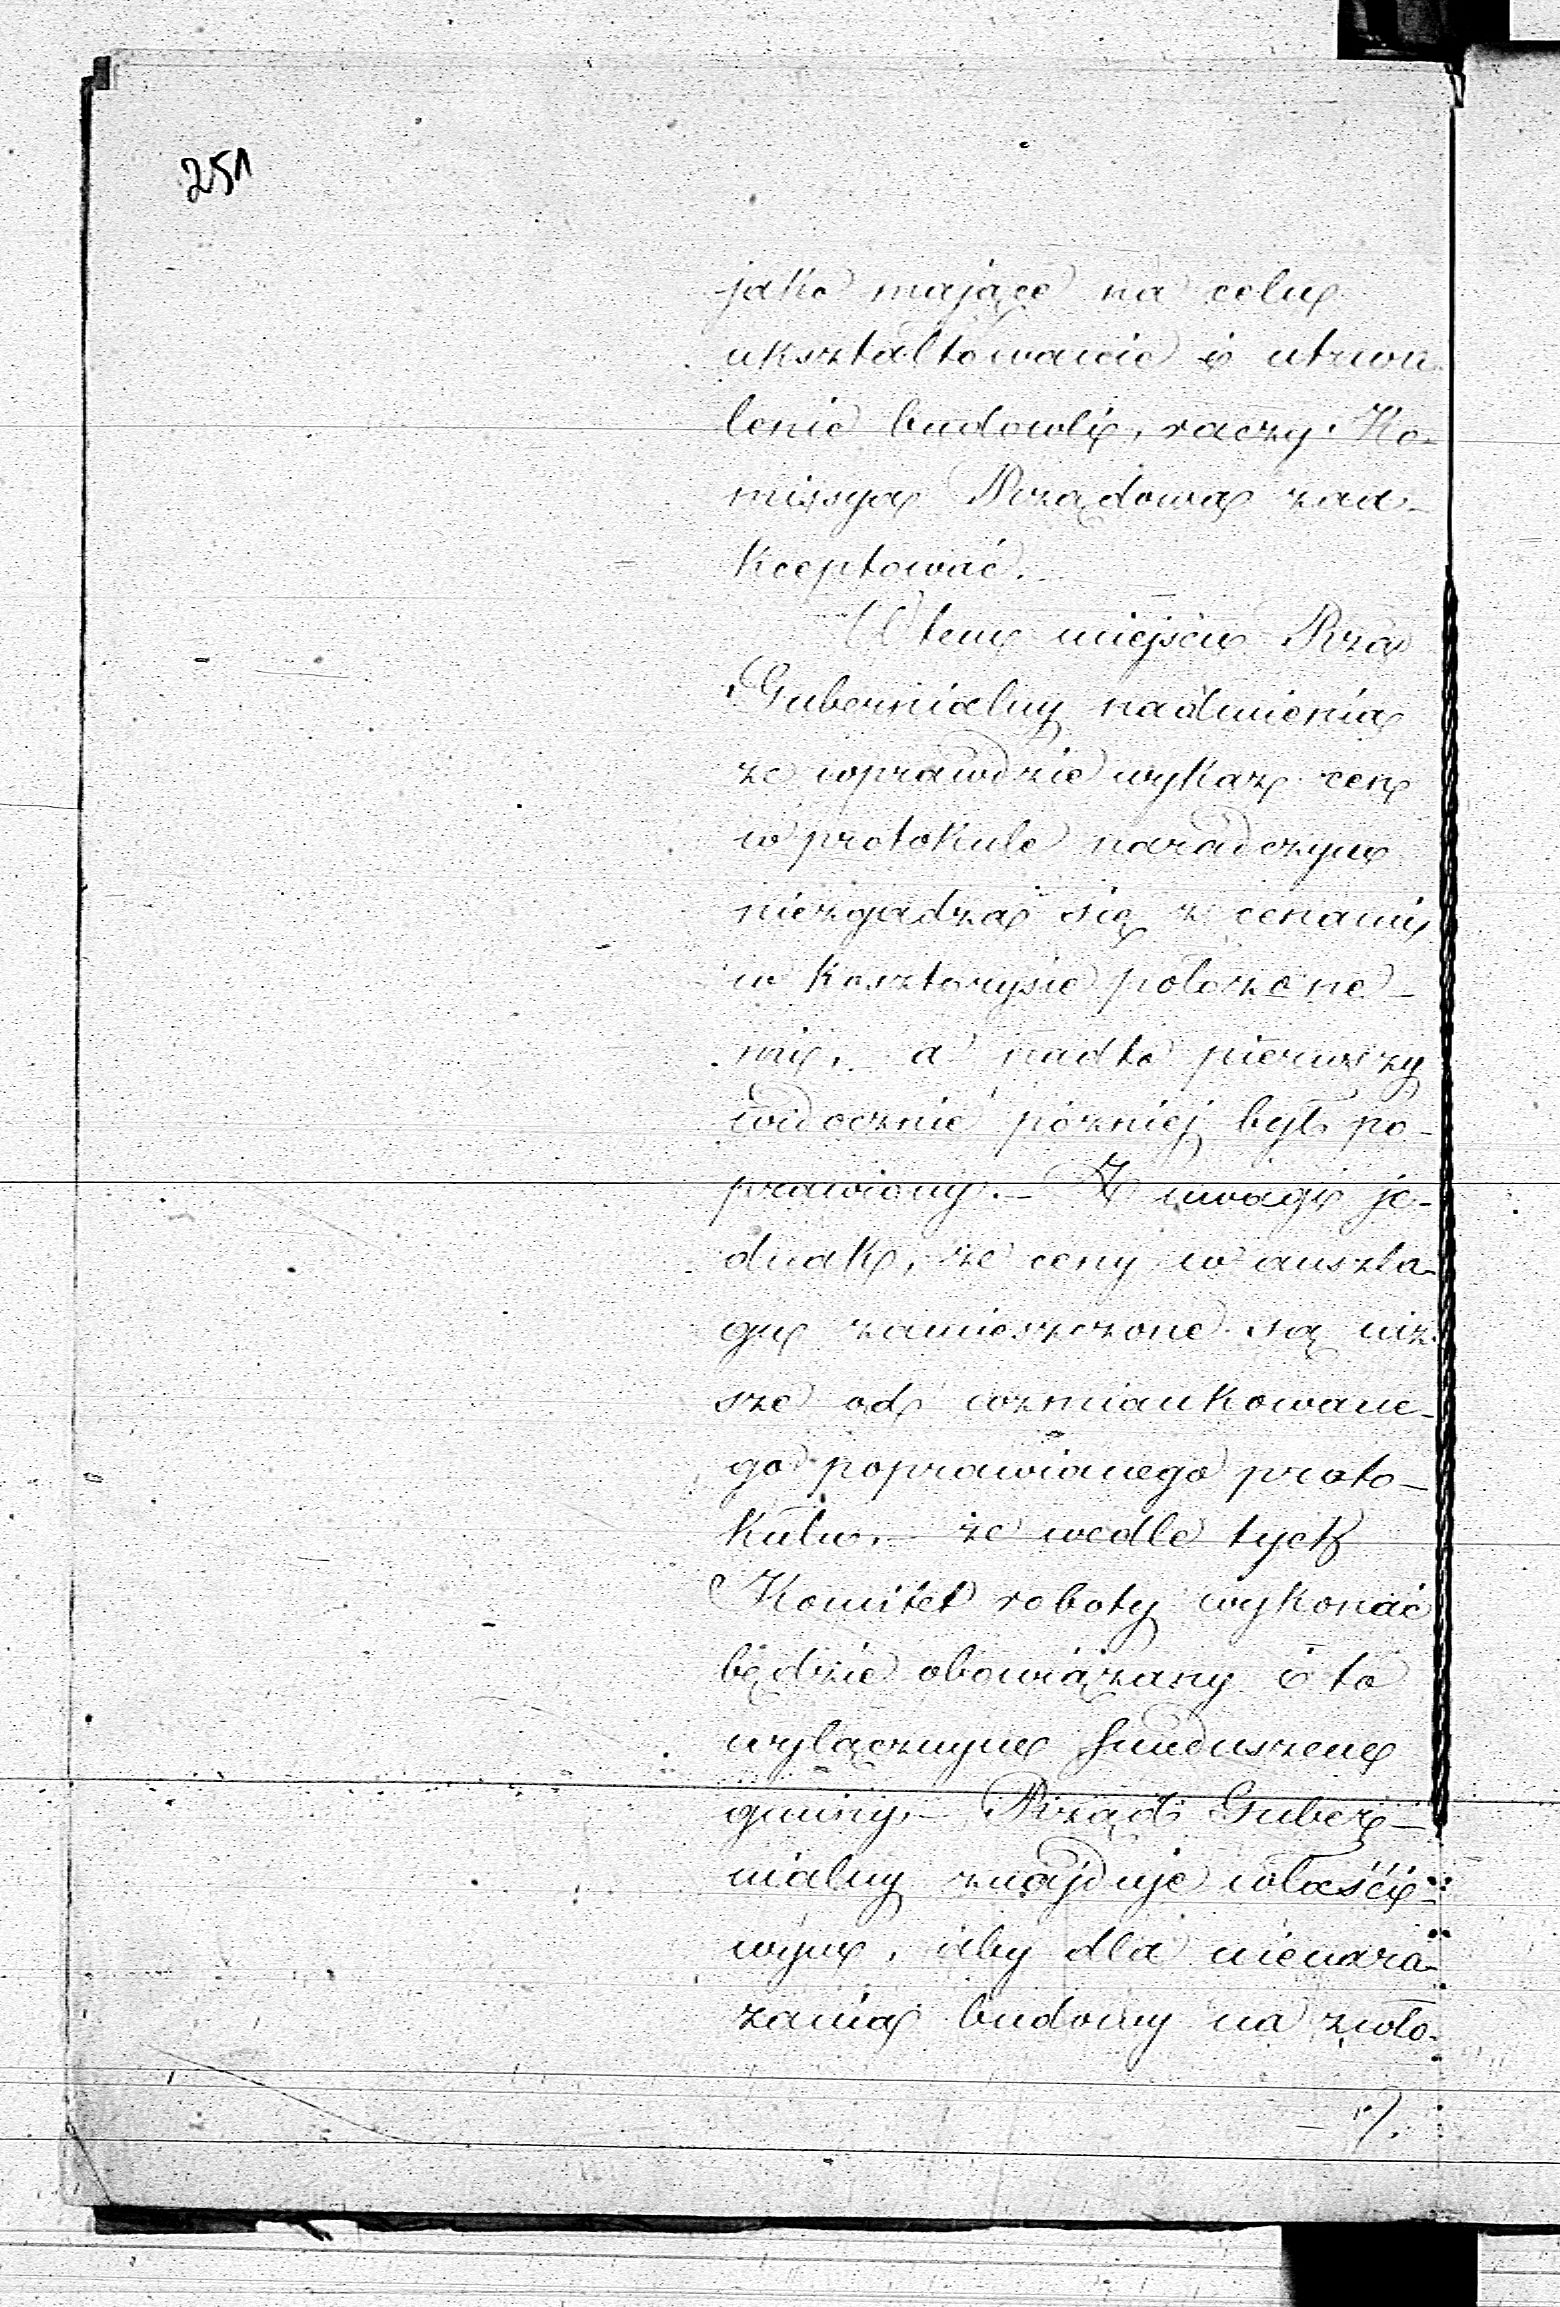 251
jako mające na celu
ukształtowanie i utrwa
lenie budowli, raczy Ko-
missya Rządowa zaa-
kceptować.
W tem miejscu Rzą
Gubernialny nadmienia
że wprawdzie wykaz cen
w protokule naradczym
niezgadza się z cenami
w kosztorysie położone-
mi, a nadto pierwszy
widocznie później był po-
prawiony. – Z uwagi je-
dnak, że ceny w auszla-
gu zamieszczone są niż
sze od wzmiankowane-
go poprawianego proto-
kułu, – że wedle tych
Komitet roboty wykonać
będzie obowiązany i to
wyłącznym funduszem
gminy, – Rząd Guber-
nialny znajduje właści-
wym, aby dla nienara-
żania budowy na zwło-